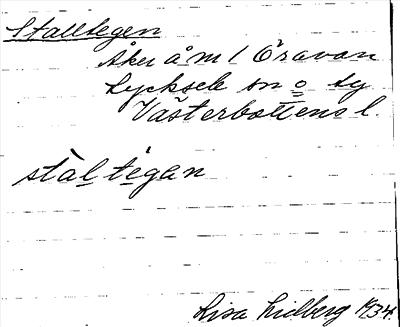 Stalltegen
Åker å m 1 Öravan
Lycksele sn o sg
Västerbottens l.
stàl tegan
Lisa Lidberg 1934.